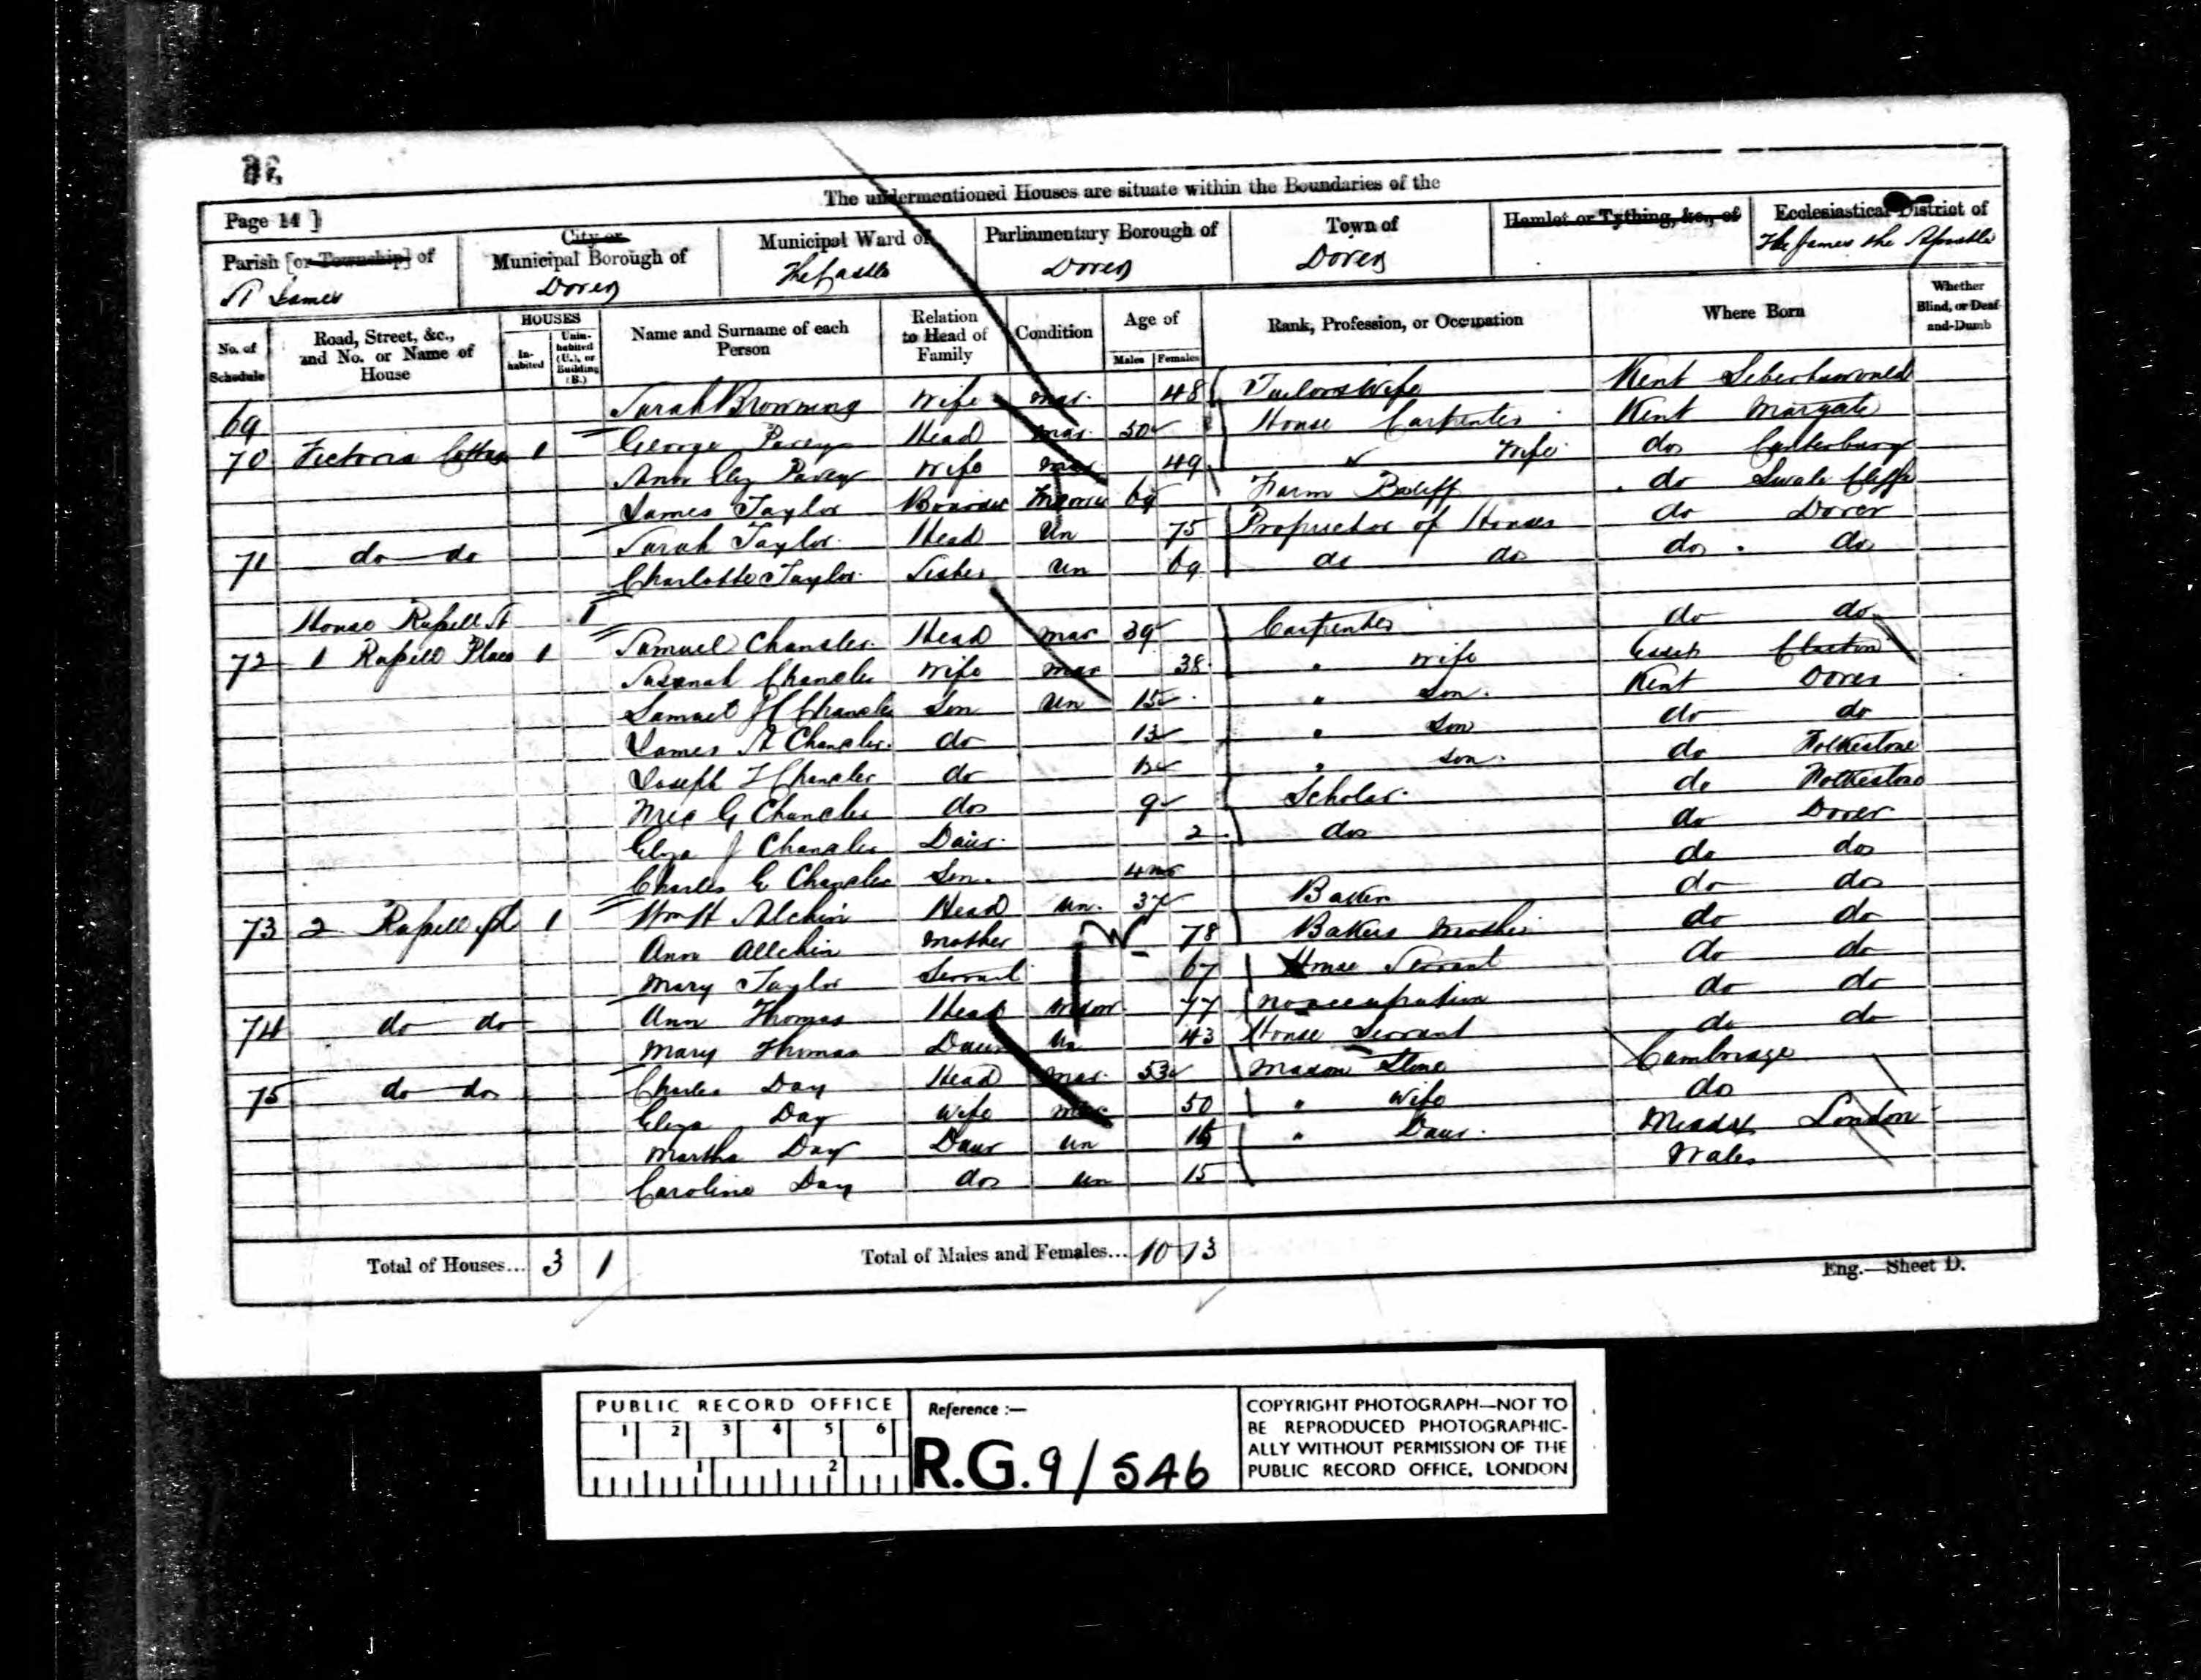 The undermentioned Houses are situate within the Boundaries of the
Page 14 ]
Parish [or Township] of
St James
City or
Municipal Borough of
Dover
Municipal Ward of
The Castle
Parliamentary Borough of
Dover
Town of
Dover
Hamlet or Tything, &c., of
Ecclesiastical District of
James the Apostle
No. of Schedule
Road, Street, &c., and No. or Name of House
HOUSES
In-habited
Unin-habited (U.), or Building (B.)
Name and Surname of each Person
Relation to Head of Family
Condition
Age of
Males Females
Rank, Profession, or Occupation
Where Born
Whether Blind, or Deaf-and-Dumb
69 Sarah Browning Wife Mar. 48 Tailors Wife Kent
70 Victoria Cottage 1 George Pavey Head Mar. 50 House Carpenter Kent Margate
Ann Eliz Pavey Wife Mar 49 Wife do Canterbury
James Taylor Boarder 69 Farm Bailiff do Swale Cliffe
71 do do Sarah Taylor Head Un 75 Proprietor of Houses do Dover
Charlotte Taylor Sister Un 69 do do do do
House Russell St 1
72 1 Russell Place 1 Samuel Chandler Head Mar 39 Carpenter do do
Susanah Chandler Wife Mar 38 " Wife Essex Clacton
Samuel Chandler Son Un 15 " Son Kent Dover
James Chandler do 13 " Son do do
Joseph Chandler do 12 " Son do Folkestone
G Chandler do 9 Scholar do Folkestone
Eliza J Chandler Daur. 2 do do Dover
Charles E Chandler Son 4 do do
73 2 Russell Pl 1 Wm H Alchin Head Un. 37 Baker do do
Ann Allchin Mother W 78 Bakers Mother do do
Mary Taylor Servant 67 House Servant do do
74 do do Ann Thomas Head Widow 77 No occupation do do
Mary Thomas Daur Un 43 House Servant do do
75 do do Charles Day Head Mar. 53 Mason Stone Cambridge
Eliza Day Wife Mar. 50 " Wife do
Martha Day Daur Un " Daur. Middx London
Caroline Day do Un 15 Wales
Total of Houses... 3 1
Total of Males and Females... 10 13
Eng.—Sheet D.
PUBLIC RECORD OFFICE
1 2 3 4 5 6
1 2
Reference :—
R.G. 9/546
COPYRIGHT PHOTOGRAPH—NOT TO
BE REPRODUCED PHOTOGRAPHIC-
ALLY WITHOUT PERMISSION OF THE
PUBLIC RECORD OFFICE, LONDON